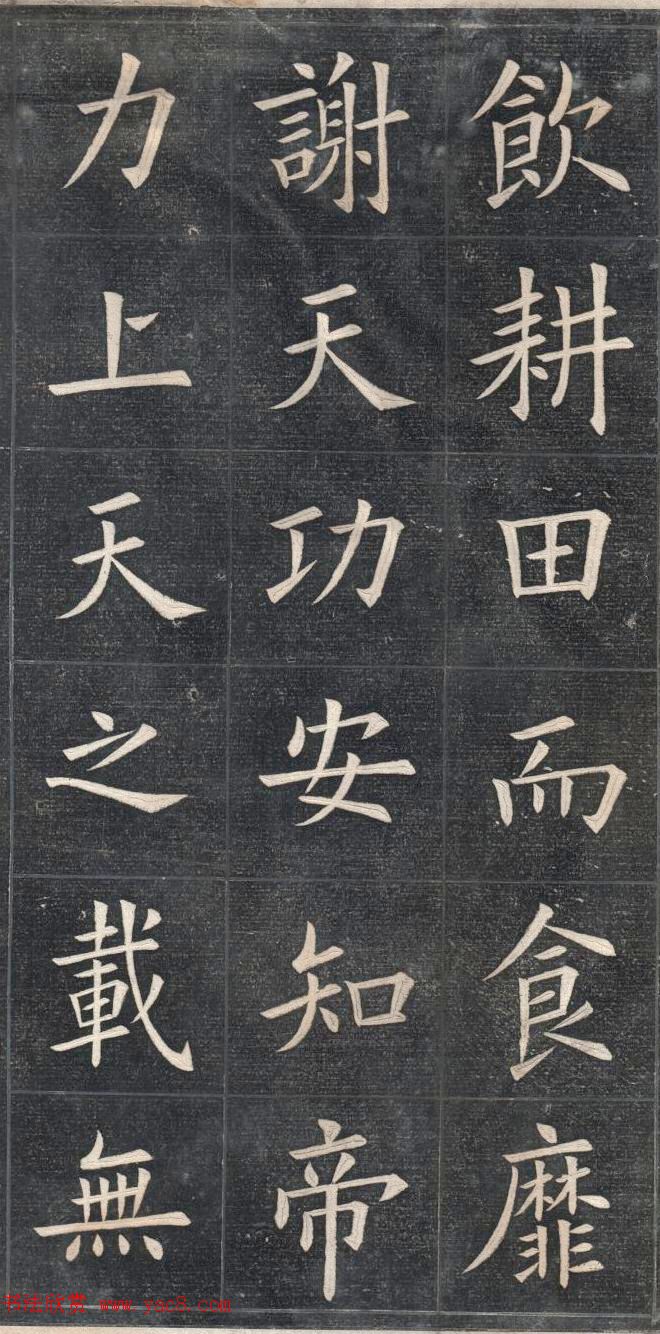 飲耕田而食靡
謝天功安知帝
力上天之載無
书法欣赏 www.yac8.com